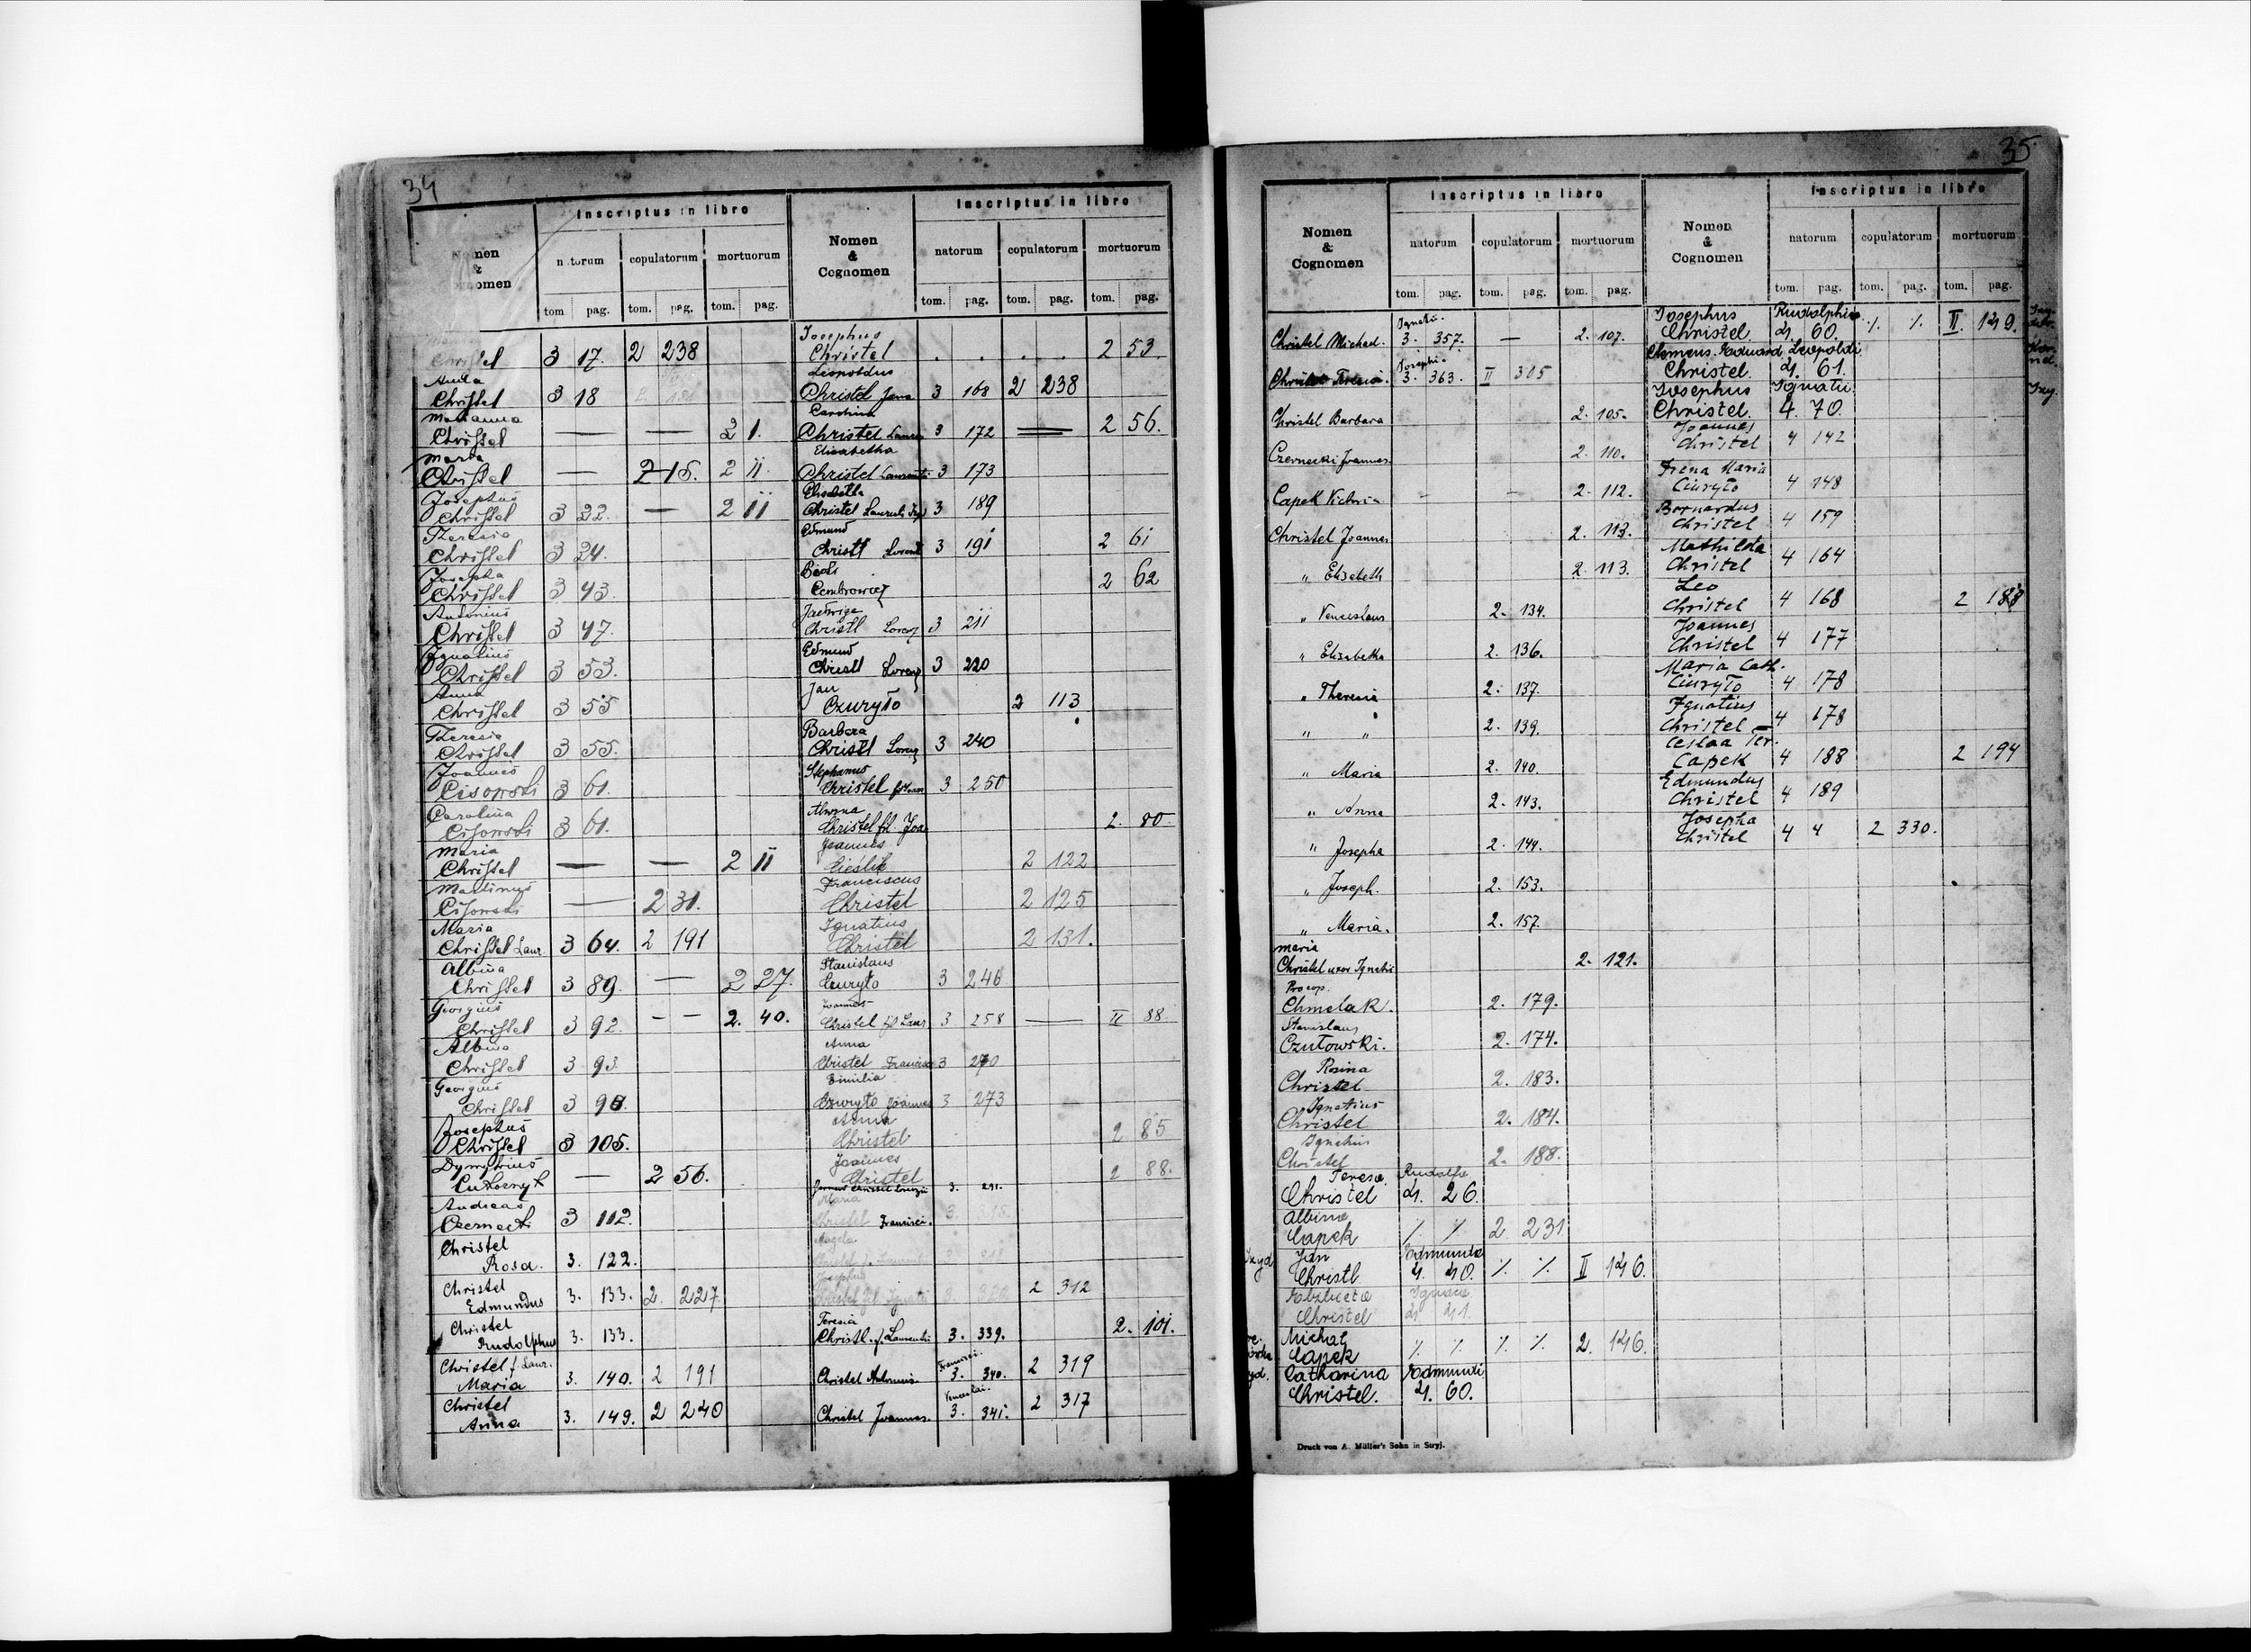 34
Inscriptus in libro
natorum copulatorum mortuorum
tom. pag. tom. pag. tom. pag.
Christel 3 17. 2 238
Anna
Christel 3 18
Marianna
Christel — — 2 1.
Maria
Christel — 2 15. 2 11.
Josephus
Christel 3 22. — 2 11
Theresia
Christel 3 24.
Josepha
Christel 3 43.
Antonius
Christel 3 47.
Ignatius
Christel 3 53.
Anna
Christel 3 55
Theresia
Christel 3 55.
Joannes
Cisowski 3 61.
Carolina
Cisowski 3 61.
Maria
Christel — — 2 11
Martinus
Cisowski — 2 31.
Maria
Christel Laur. 3 64. 2 191
Albina
Christel 3 89. — 2 27.
Georgius
Christel 3 92. — — 2. 40.
Albina
Christel 3 93.
Georgius
Christel 3 98.
Josephus
Christel 3 105.
Dymytrius
— 2 56.
Andreas
Czernecki 3 112.
Christel
Rosa. 3. 122.
Christel
Edmundus 3. 133. 2. 227.
Christel
Rudolphus 3. 133.
Christel f. Laur.
Maria 3. 140. 2 191
Christel
Anna 3. 149. 2 240
Nomen
&
Cognomen
Inscriptus in libro
natorum copulatorum mortuorum
tom. pag. tom. pag. tom. pag.
Josephus
Christel . . . . 2 53.
Leopoldus
Christel Jana 3 168 2 238
Carolina
Christel 3 172 — 2 56.
Elisabetha
Christel Laurenti 3 173
Elisabetha
Christel 3 189
Edmund
Christl 3 191 2 61
Cembrowicz 2 62
Jadwiga
Christl Lorenz 3 211
Edmund
Christl Lorenz 3 220
Jan
Czuryło 2 113
Barbara
Christl Lorenz 3 240
Stephanus
Christel 3 250
Christel fil Joa 2. 80
Joannes
Cieślik 2 122
Franciscus
Christel 2 125
Ignatius
Christel 2 131.
Stanislaus
Czuryło 3 246
Joannes
Christel fil Laur 3 258 — II 88.
Anna
Christel 3 270
Emilia
Czuryło Joannes 3 273
Anna
Christel 2 85
Joannes
Christel 2 88.
3. 291.
Maria
Christel Francisci. 3.
Josephus
Christel fil Ignatii 2 312
Teresia
Christl. f. Laurentii 3. 339. 2. 101.
Francisci.
Christel Antonius 3. 340. 2 319
Venceslai.
Christel Joannes. 3. 341. 2 317
35.
Nomen
&
Cognomen
Inscriptus in libro
natorum copulatorum mortuorum
tom. pag. tom. pag. tom. pag.
Ignatii.
Christel Michael. 3. 357. — 2. 107.
Josephi.
Christel Teresia. 3. 363. II 305
Christel Barbara 2. 105.
Czernecki Joannes 2. 110.
Capek Victoria - - 2. 112.
Christel Joannes 2. 113.
" Elisabeth 2. 113.
" Venceslaus 2. 134.
" Elisabetha 2. 136.
" Theresia 2. 137.
" " 2. 139.
" Maria 2. 140.
" Anna 2. 143.
" Josepha 2. 149.
" Joseph. 2. 153.
" Maria. 2. 157.
Maria
Christel uxor Ignatii 2. 121.
Procop.
Chmelak. 2. 179.
Stanislaus
Czułowski. 2. 174.
Rosina
Christel 2. 183.
Ignatius
Christel 2. 184.
Ignatius
Christel 2. 188.
Teresa Rudolfa
Christel 4. 26.
Albina
Capek % % 2 231
Jan Edmunda
Christl 4. 40. % % II 146.
Elzbieta Ignaca
Christel 4 41.
Michał
Capek % % % % 2. 146.
Catharina Edmundi
Christel. 4. 60.
Nomen
&
Cognomen
Inscriptus in libro
natorum copulatorum mortuorum
tom. pag. tom. pag. tom. pag.
Josephus Rudolphi
Christel 4. 60. % % II. 149.
Clemens. Eduard Leopoldi
Christel. 4. 61.
Josephus Ignatii
Christel. 4. 70.
Joannes
Christel 4 142
Irena Maria
Ciuryło 4 148
Bernardus
Christel 4 159
Mathilda
Christel 4 164
Leo
Christel 4 168 2 188
Joannes
Christel 4 177
Maria Cath.
Ciuryło 4 178
Ignatius
Christel 4 178
Capek 4 188 2 194
Edmundus
Christel 4 189
Josepha
Christel 4 4 2 330.
Druck von A. Müller's Sohn in Stryj.